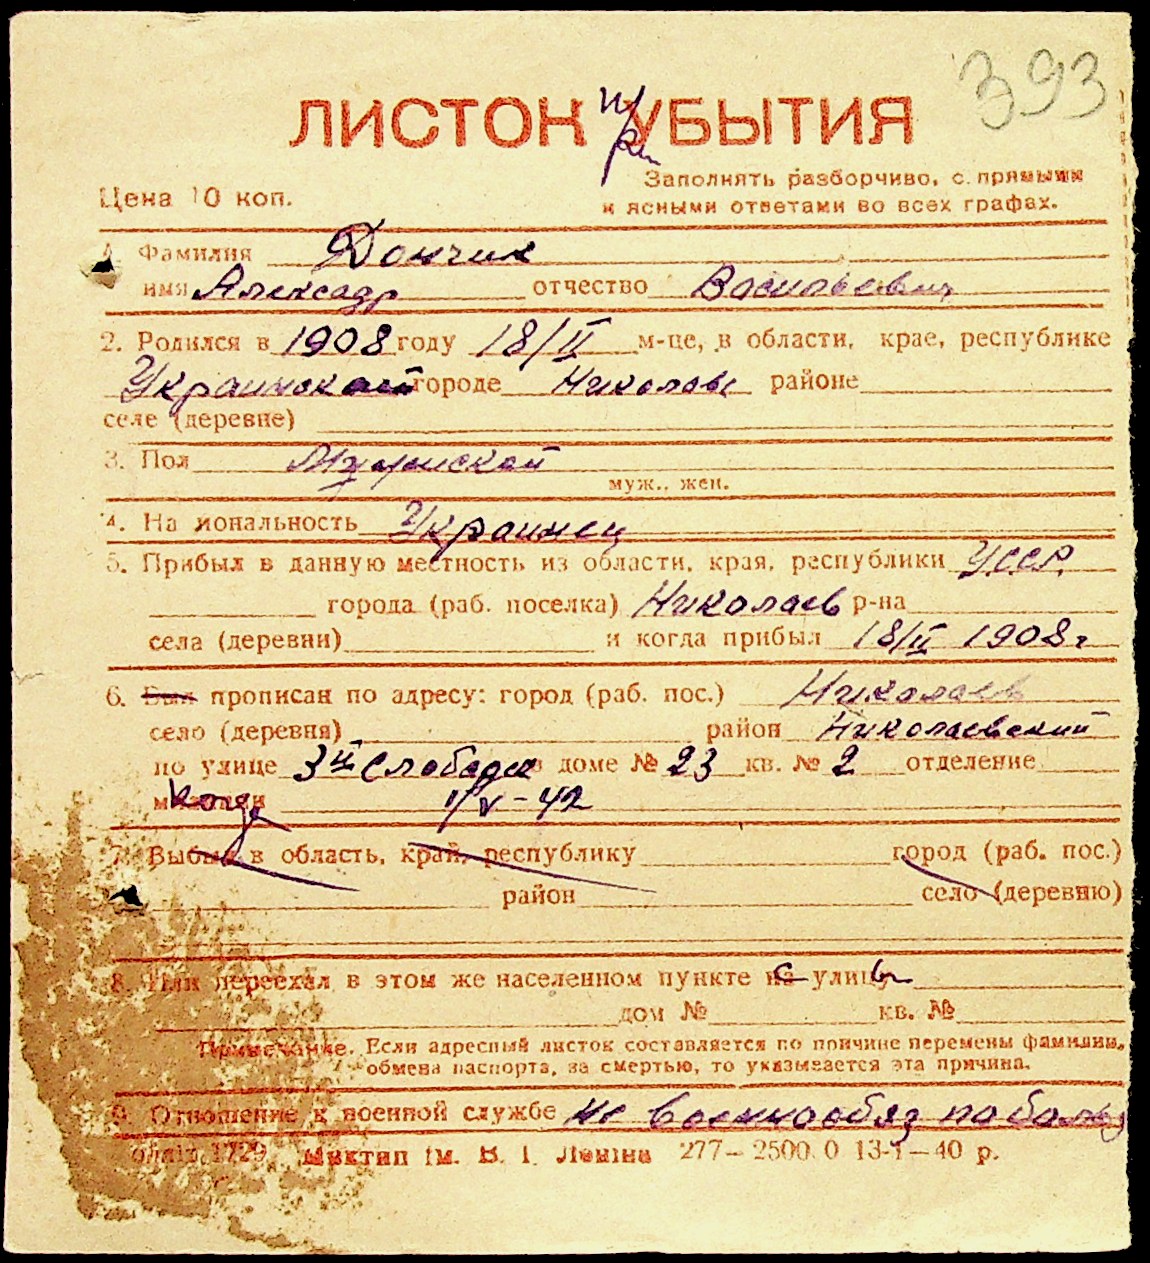 393
ЛИСТОК УБЫТИЯ
Цена 10 коп.
Заполнять разборчиво, с прямыми
и ясными ответами во всех графах.
1. Фамилия Дончик
имя Александр отчество Васильевич
2. Родился в 1908 году 18/II м-це, в области, крае, республике
Украинской городе Николаев районе
селе (деревне)
3. Пол Мужской
муж., жен.
4. Национальность Украинец
5. Прибыл в данную местность из области, края, республики УССР
города (раб. поселка) Николаев р-на
села (деревни) и когда прибыл 18/II 1908 г
6. Был прописан по адресу: город (раб. пос.) Николаев
село (деревня) район Николаевский
по улице 3й Слободск в доме № 23 кв. № 2 отделение
милиции Когда 1/V-42
7. Выбыл в область, край, республику город (раб. пос.)
район село (деревню)
8. Или переехал в этом же населенном пункте на улицу
дом № кв. №
Примечание. Если адресный листок составляется по причине перемены фамилии,
обмена паспорта, за смертью, то указывается эта причина.
9. Отношение к военной службе не военнообяз по болез
облит 1729 Миктип ім. В. І. Леніна 277–2500.0 13-I–40 р.